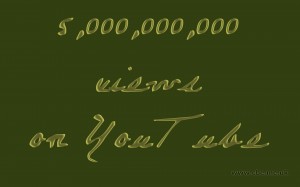 5,000,000,000
views
on YouTube